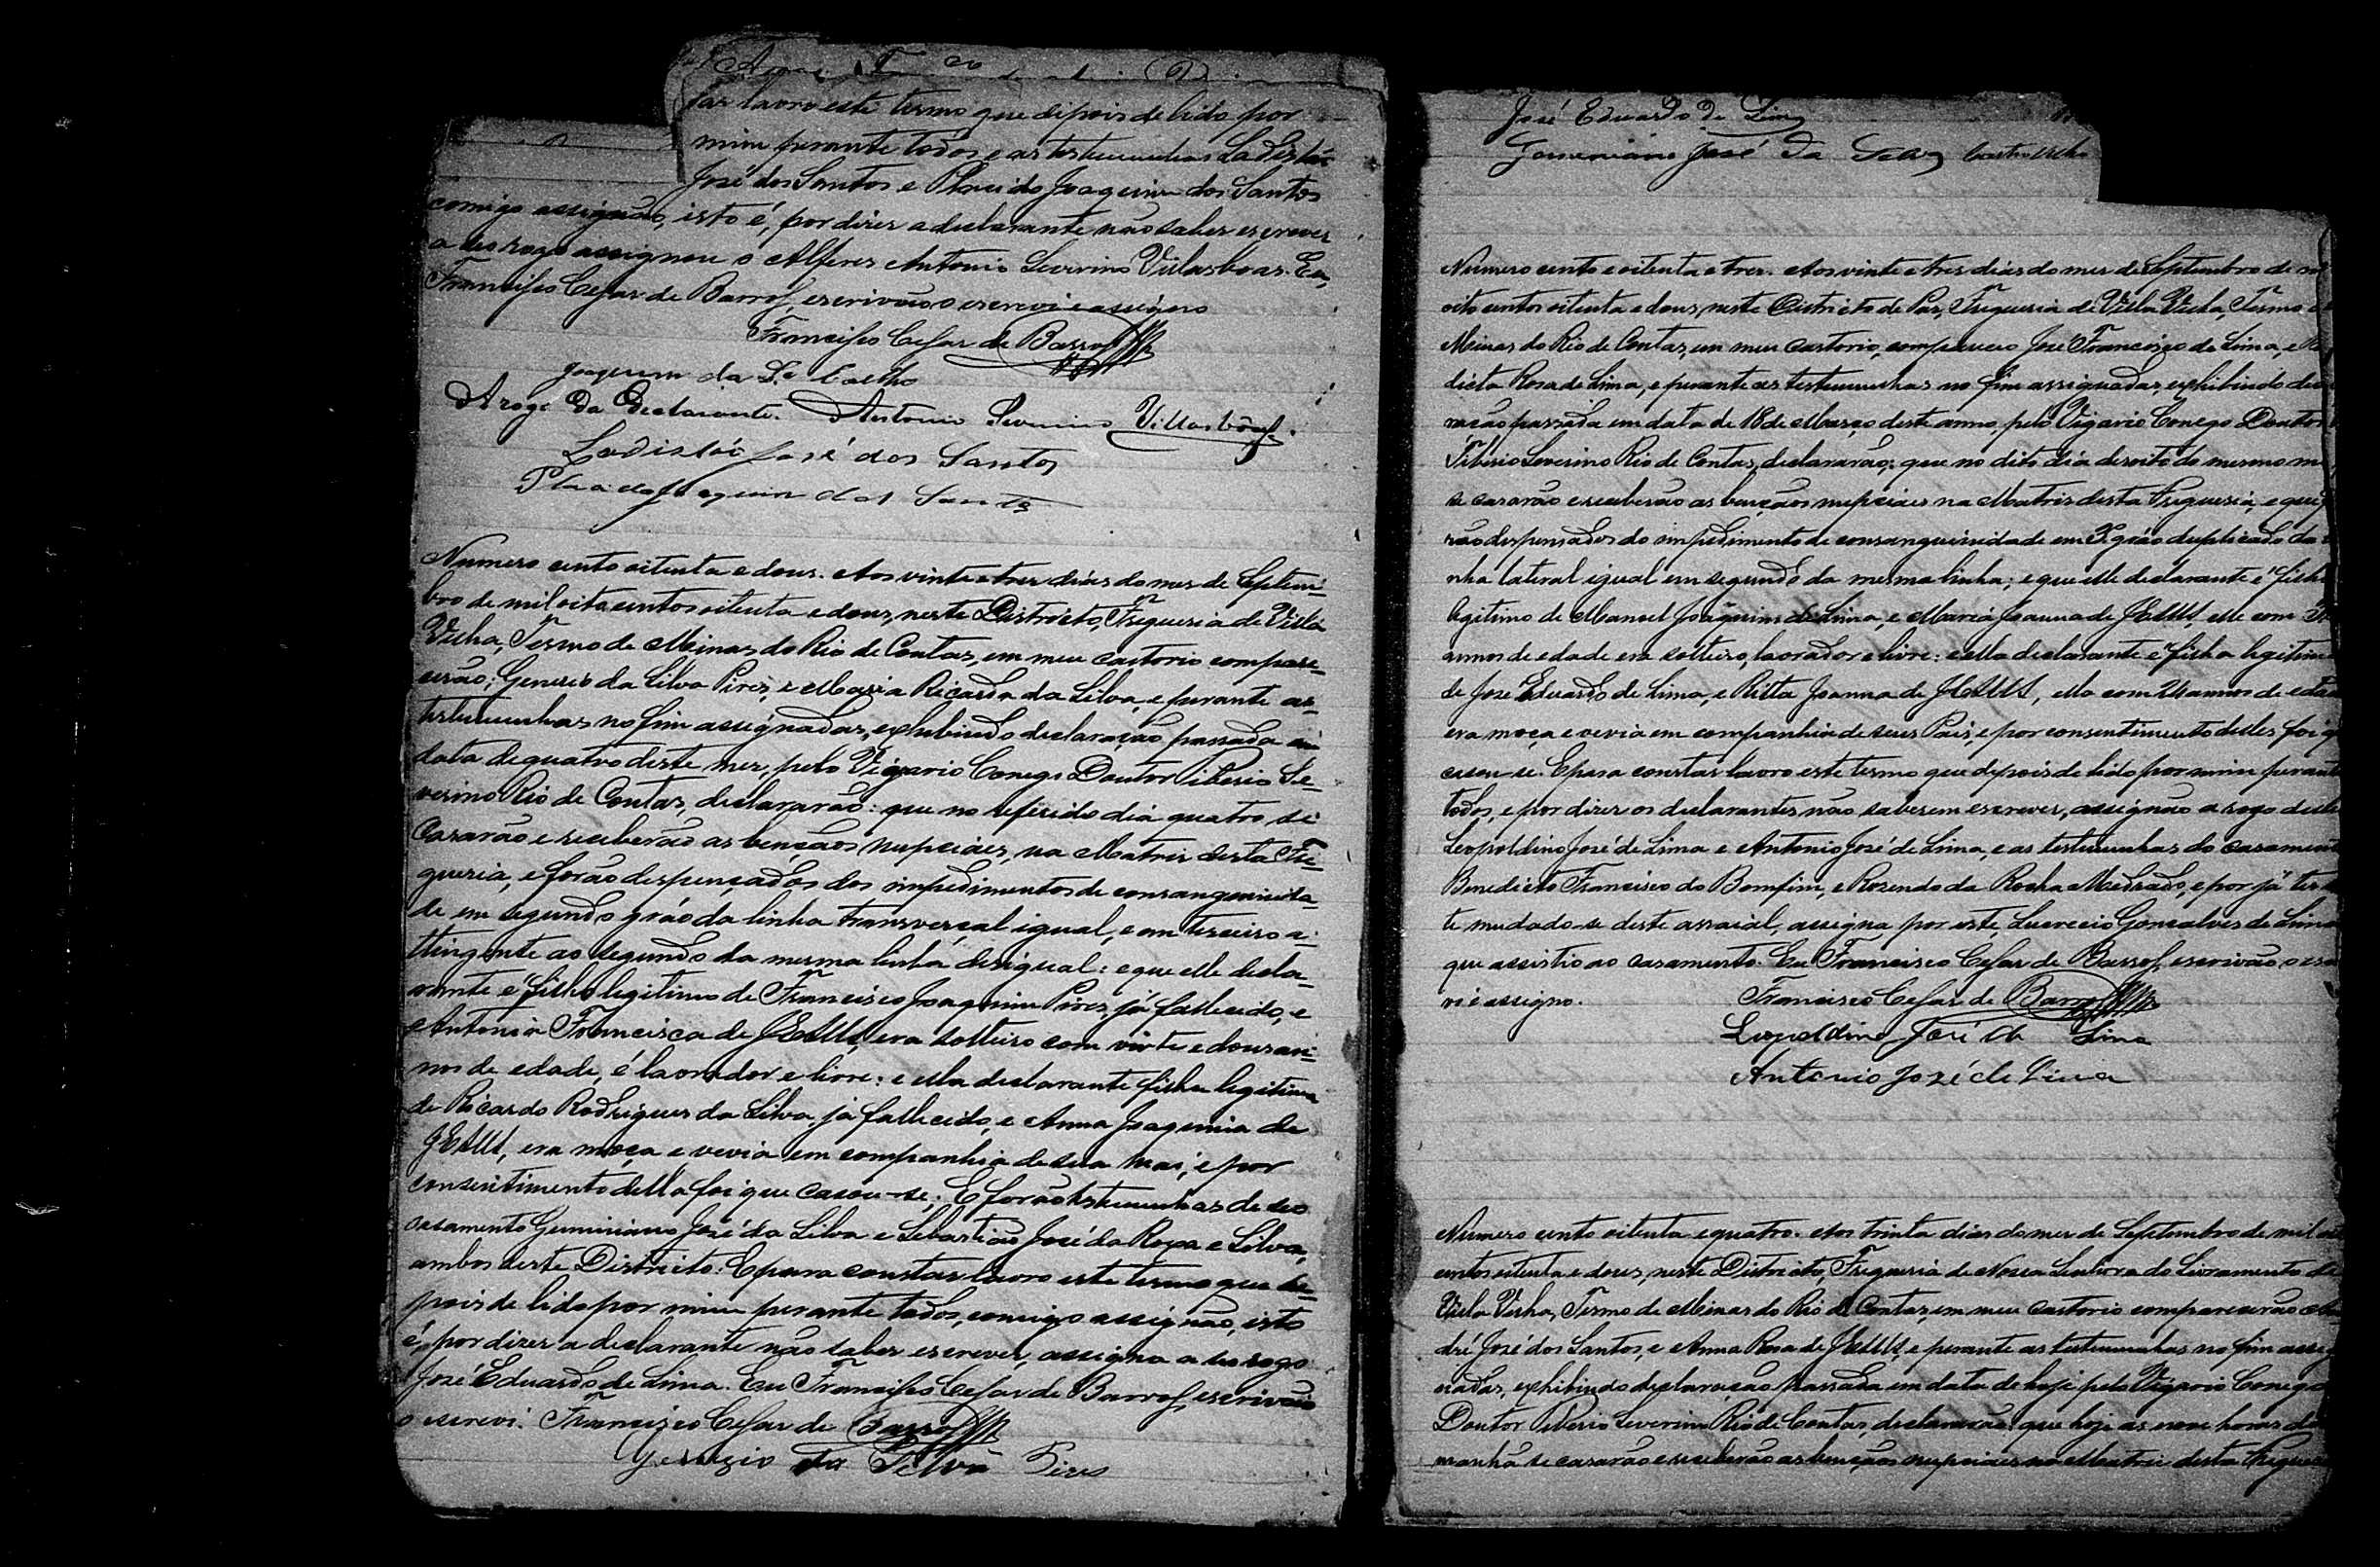 far lavro este termo que dipois de lido por
mim perante todos e as testemunhas Ladisláo
José dos Santos e Placido Joaquim dos Santos
comigo assignão, isto é, por dizer a declarante não saber escrever
a seo rogo assignou o Alferes Antonio Severino Villasboas. Eu,
Francisco Cesar de Barros, escrivão o escrevi e assigno
Francisco Cesar de Barros
Joaquim da Sª Coelho
A rogo da Declarante. Antonio Severino Villasboas.
Ladisláo José dos Santos
Placido Joaquim dos Santos
Numero cento oitenta e dous. Aos vinte e tres dias do mes de Septem-
bro de mil oito centos oitenta e dous, neste Districto, Freguesia de Villa
Velha, Termo de Minas do Rio de Contas, em meu cartorio compare-
cerão; Genesio da Silva Pires, e Maria Ricarda da Silva, e perante as
testemunhas no fim assignadas, exhibindo declaração passada em
data de quatro deste mez, pelo Vigario Conego Doutor Tiberio Se-
verino Rio de Contas, declararão: que no referido dia quatro se
Casarão e receberão as bençãos nupciaes, na Matriz desta Fre-
guesia, e forão despensados dos impedimentos de consanguinida-
de em segundo gráo da linha transversal igual, e em terceiro a-
ttingente ao segundo da mesma linha desigual: e que elle decla-
rante é filho legitimo de Francisco Joaquim Pires, já fallecido, e
Antonia Francisca de JESUS, era solteiro com vinte e dous an-
nos de edade, é lavrador e livre: e ella declarante filha legitima
de Ricardo Rodrigues da Silva, já fallecido, e Anna Joaquina de
JESUS, era moça e vevia em companhia de sua mai, e por
consentimento della foi que casou-se; E forão testemunhas de seo
casamento Geminiano José da Silva e Sebastião José da Roxa e Silva,
ambos deste Districto. E para constar lavro este termo que de-
pois de lido por mim perante todos, comigo assignão, isto
é, por dizer a declarante não saber escrever, assigna a seo rogo
José Eduardo de Lima. Eu Francisco Cesar de Barros, escrivão
o escrevi. Francisco Cesar de Barros
Genezio da Silva Pires
José Eduardo de Lima
José da Silva
Numero cento e oitenta e tres. Aos vinte e tres dias do mez de Septembro de mil
oito centos oitenta e dous, neste Districto de Paz, Freguesia de Villa Velha, Termo de
Minas do Rio de Contas, em meu cartorio, compareceo José Francisco de Lima, e
dicta Rosa de Lima, e perante as testemunhas no fim assignadas, exhibindo
ração passada em data de 18 de Março deste anno, pelo Vigario Conego Doutor
Tiberio Severino Rio de Contas, declararão; que no dito dia dezoito do mesmo
se casarão e receberão as bençãos nupciaes na Matriz desta Freguesia, e que
rão despensados do impedimento de consanguinidade em 3º gráo duplicado da
nha lateral igual em segundo da mesma linha; e que elle declarante é filho
legitimo de Manoel Joaquim de Lima, e Maria Joanna de JESUS, elle com
annos de edade era solteiro, lavrador e livre: e ella declarante é filha legitima
de José Eduardo de Lima, e Ritta Joanna de JESUS, ella com annos de edade
era moça e vevia em companhia de seus Pais, e por consentimento delles foi q
casou-se. E para constar lavro este termo que depois de lido por mim perante
todos, e por dizer os declarantes não saberem escrever, assignão a rogo
Leopoldino José de Lima e Antonio José de Lima, e as testemunhas do casamento
Benedicto Francisco do Bomfim, e Rozendo da Rocha Medrado, e por já ter
te mudado-se deste arraial, assigna por este, Lucrecio Gonsalves de Lima
que assistio ao casamento. Eu Francisco Cesar de Barros, escrivão o
vi e assigno. Francisco Cesar de Barros
Leopoldino José de Lima
Antonio José de Lima
Numero cento oitenta e quatro. Aos trinta dias do mez de Septembro de mil
centos oitenta e dous, neste Districto, Freguesia de Nossa Senhora do Livramento de
Villa Velha, Termo de Minas do Rio de Contas, em meu cartorio comparecerão
dré José dos Santos, e Anna Rosa de JESUS, e perante as testemunhas no fim assig
nadas, exhibindo declaração passada em data de hoje pelo Vigario Conego
Doutor Tiberio Severino Rio de Contas, declararão: que hoje as nove horas da
manhã se casarão e receberão as bençãos nupciaes na Matriz desta Freguesia